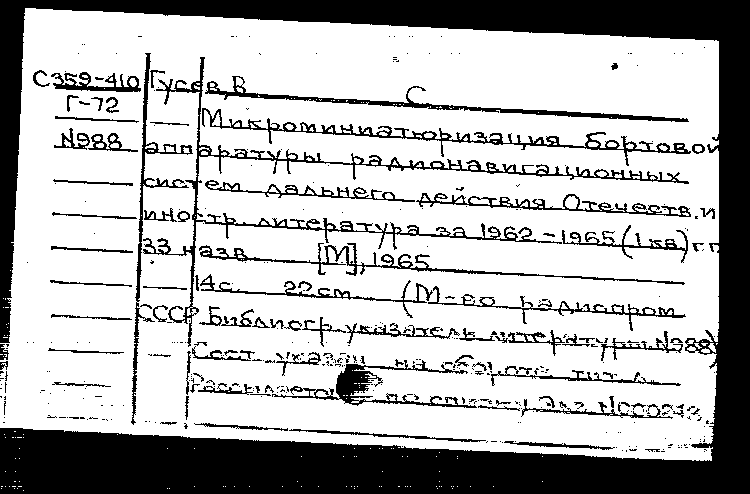 С359-410 Гусев, В С
Г-72
Микроминиатюризация бортовой
N988 аппаратуры радионавигационных
систем дальнего действия. Отечеств. и
иностр. литература за 1962-1965 (1 кв) г.г.
33 назв. [М], 1965
14с. 22см. (М-во радиопром
СССР. Библиогр. указатель литературы. N988)
Сост. указан на обороте тит. л.
Рассылается по списку. Экз. N000243